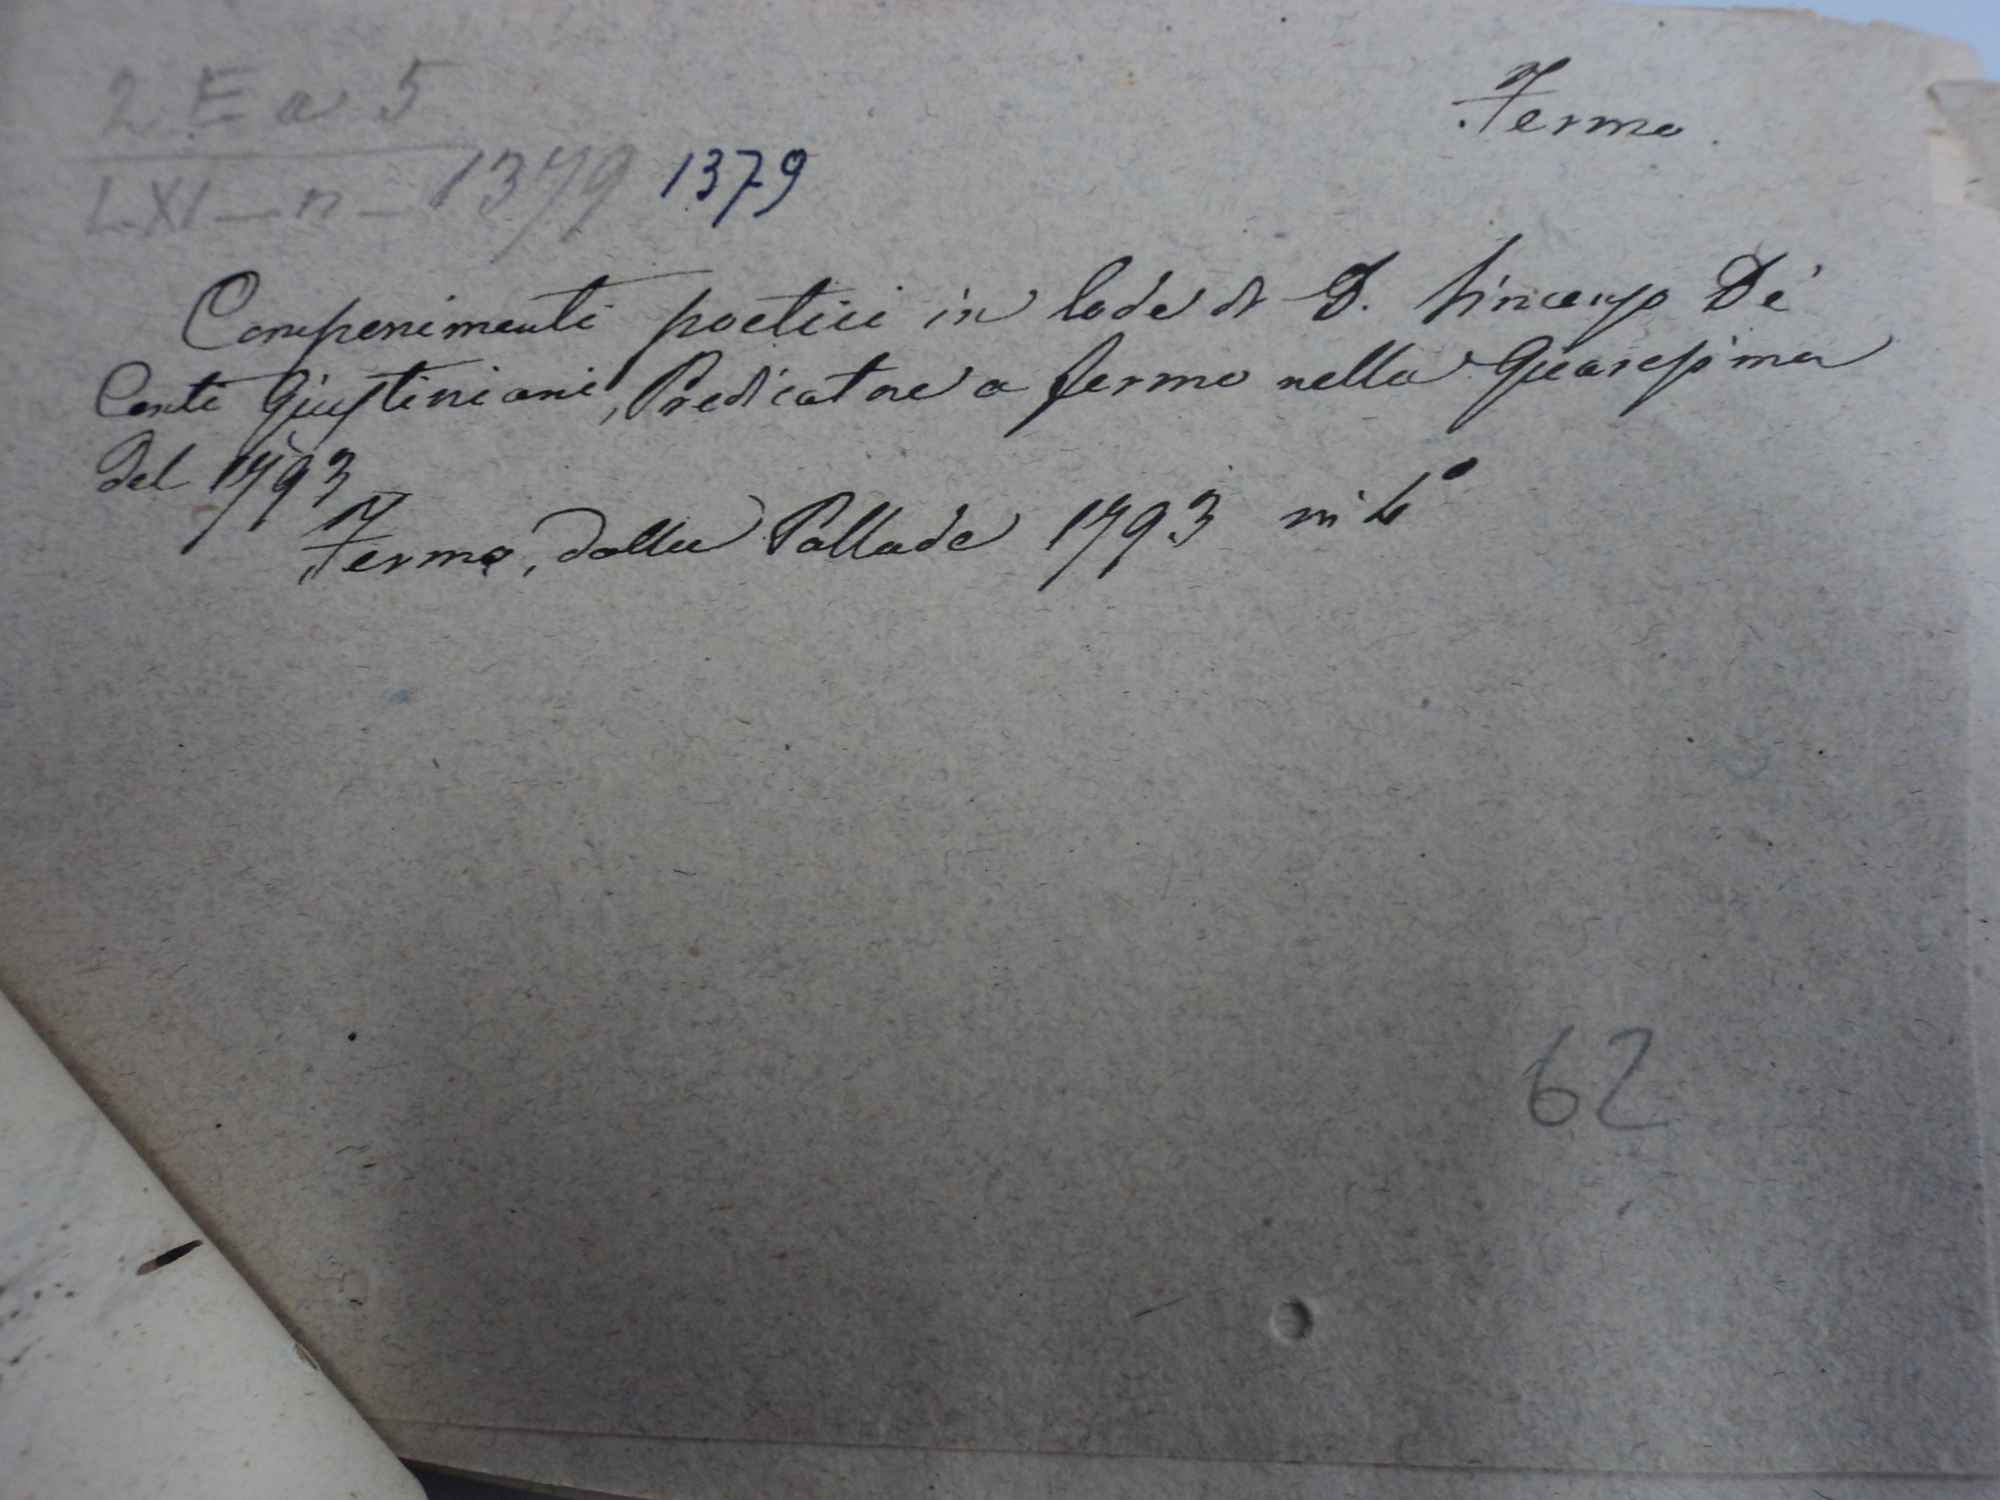 2 E a 5
Fermo.
LXI - n - 1379 1379
Componimenti poetici in lode di D. Vincenzo De'
Conti Giustiniani, Predicatore a Fermo nella Quaresima
del 1793
Fermo, dalla Pallade 1793 in 4°
62